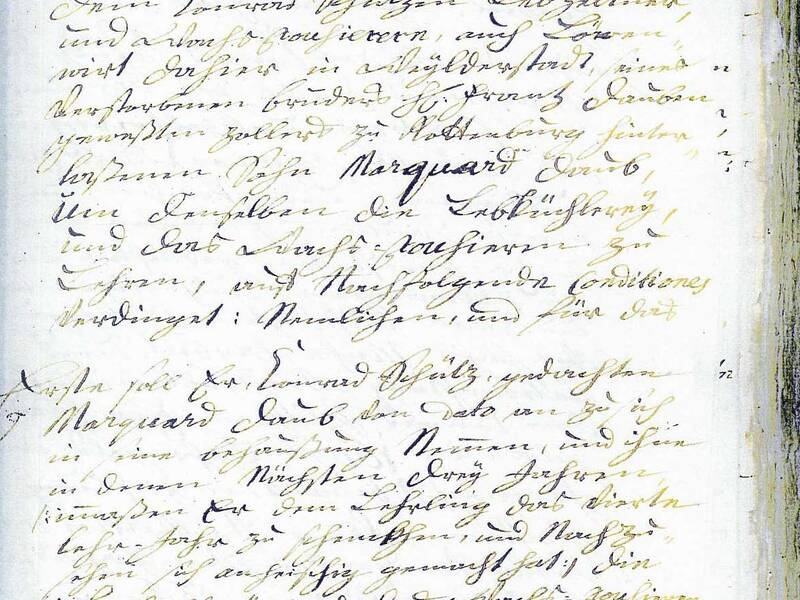 dem Konrad Schützen Lebzeltner,
und Wachs-Pousierern, auch Löwen
wirt dahier in Weylderstadt, seines
Verstorbenen bruders H. Frantz Dauben
geweßten zollers zu Rottenburg hinter
laßenen Sohn Marquard Daub,
Um denselben die Lebküchlerey,
und das Wachs-Pousieren zu
Lehren, auf Nachfolgende Conditiones
Verdinget: Nemlichen, und für das
Erste soll Er, Konrad Schütz, gedachten
Marquard Daub von dato an zu sich
in seine behaußung Nemen, und ihne
in denen Nächsten drey Jahren,
/: inmaßen Er dem Lehrling das Vierte
lehr-Jahr zu schencken, und Nachzu
sehen sich anheischig gemacht hat :/ die